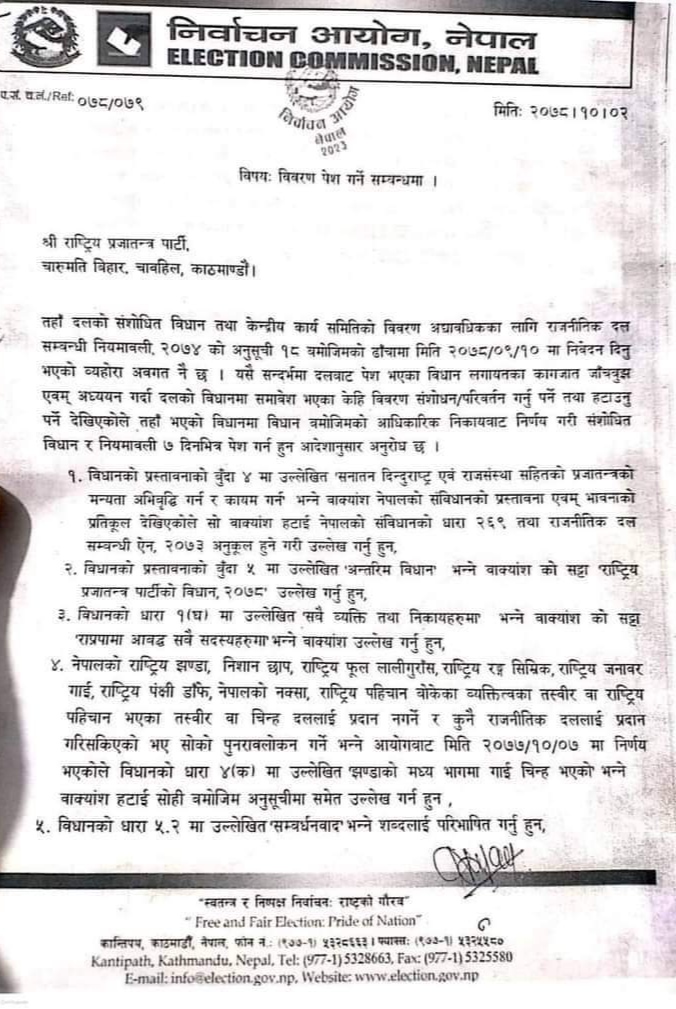 निर्वाचन आयोग, नेपाल
ELECTION COMMISSION, NEPAL
प.सं. च.नं./Ref: ०७८/०७९
मितिः २०७८।१०।०२
निर्वाचन आयोग
नेपाल
२०२३
विषयः विवरण पेश गर्ने सम्वन्धमा ।
श्री राष्ट्रिय प्रजातन्त्र पार्टी,
चारुमति बिहार, चावहिल, काठमाण्डौं।
तहाँ दलको संशोधित विधान तथा केन्द्रीय कार्य समितिको विवरण अद्यावधिकका लागि राजनीतिक दल
सम्वन्धी नियमावली, २०७४ को अनुसूची १८ वमोजिमको ढाँचामा मिति २०७८/०९/१० मा निवेदन दिनु
भएको व्यहोरा अवगत नै छ । यसै सन्दर्भमा दलवाट पेश भएका विधान लगायतका कागजात जाँचवुझ
एवम् अध्ययन गर्दा दलको विधानमा समावेश भएका केहि विवरण संशोधन/परिवर्तन गर्नु पर्ने तथा हटाउनु
पर्ने देखिएकोले तहाँ भएको विधानमा विधान वमोजिमको आधिकारिक निकायवाट निर्णय गरी संशोधित
विधान र नियमावली ७ दिनभित्र पेश गर्न हुन आदेशानुसार अनुरोध छ ।
१. विधानको प्रस्तावनाको वुँदा ४ मा उल्लेखित 'सनातन दिन्दुराष्ट्र एवं राजसंस्था सहितको प्रजातन्त्रको
मन्यता अभिवृद्धि गर्न र कायम गर्न' भन्ने वाक्यांश नेपालको संविधानको प्रस्तावना एवम् भावनाको
प्रतिकूल देखिएकोले सो वाक्यांश हटाई नेपालको संविधानको धारा २६९ तथा राजनीतिक दल
सम्वन्धी ऐन, २०७३ अनुकूल हुने गरी उल्लेख गर्नु हुन,
२. विधानको प्रस्तावनाको वुँदा ५ मा उल्लेखित 'अन्तरिम विधान' भन्ने वाक्यांश को सट्टा 'राष्ट्रिय
प्रजातन्त्र पार्टीको विधान, २०७८' उल्लेख गर्नु हुन,
३. विधानको धारा १(घ) मा उल्लेखित 'सवै व्यक्ति तथा निकायहरुमा' भन्ने वाक्यांश को सट्टा
'राप्रपामा आवद्ध सवै सदस्यहरुमा' भन्ने वाक्यांश उल्लेख गर्नु हुन,
४. नेपालको राष्ट्रिय झण्डा, निशान छाप, राष्ट्रिय फूल लालीगुराँस, राष्ट्रिय रङ्ग सिम्रिक, राष्ट्रिय जनावर
गाई, राष्ट्रिय पंक्षी डाँफे, नेपालको नक्सा, राष्ट्रिय पहिचान वोकेका व्यक्तित्वका तस्वीर वा राष्ट्रिय
पहिचान भएका तस्वीर वा चिन्ह दललाई प्रदान नगर्ने र कुनै राजनीतिक दललाई प्रदान
गरिसकिएको भए सोको पुनरावलोकन गर्ने भन्ने आयोगवाट मिति २०७७/१०/०७ मा निर्णय
भएकोले विधानको धारा ४(क) मा उल्लेखित 'झण्डाको मध्य भागमा गाई चिन्ह भएको' भन्ने
वाक्यांश हटाई सोही वमोजिम अनुसूचीमा समेत उल्लेख गर्न हुन ,
५. विधानको धारा ५.२ मा उल्लेखित 'सम्वर्धनवाद' भन्ने शब्दलाई परिभाषित गर्नु हुन,
"स्वतन्त्र र निष्पक्ष निर्वाचनः राष्ट्रको गौरव"
" Free and Fair Election: Pride of Nation"
कान्तिपथ, काठमाडौं, नेपाल, फोन नं.: (९७७-१) ५३२८६६३। फ्याक्सः (९७७-१) ५३२५५८०
Kantipath, Kathmandu, Nepal, Tel: (977-1) 5328663, Fax: (977-1) 5325580
E-mail: info@election.gov.np, Website: www.election.gov.np